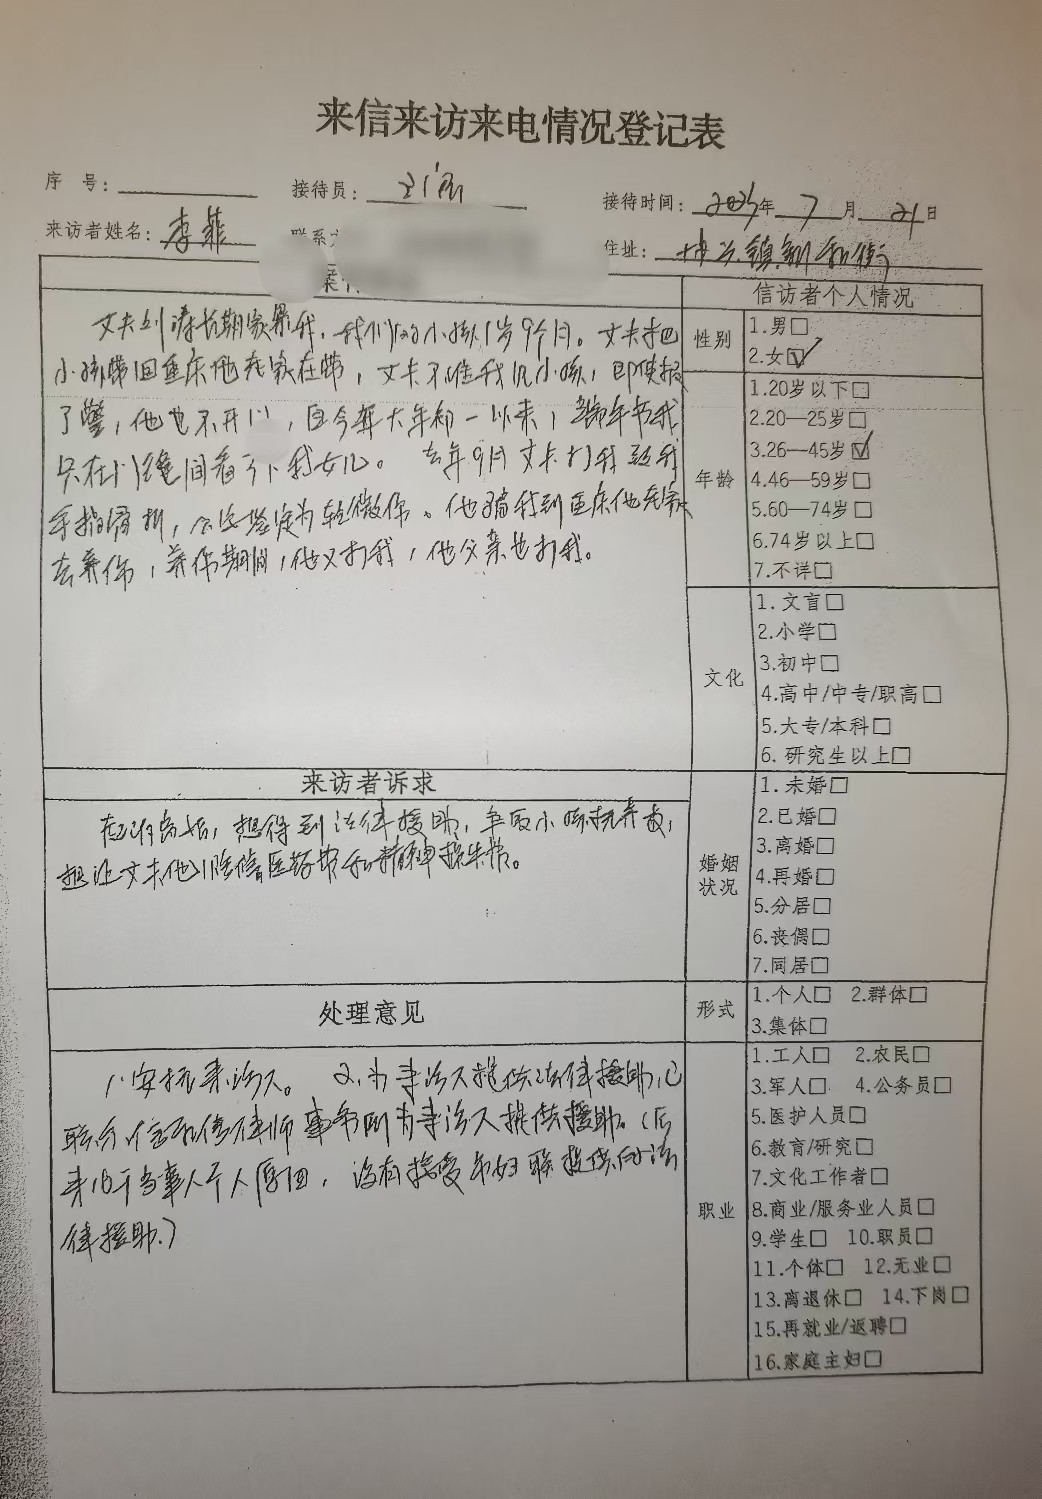 来信来访来电情况登记表
序 号:
接待员:
接待时间: 年 7 月 21 日
来访者姓名: 李菲
住址: 镇新和街
信访者个人情况
丈夫刘涛长期家暴我,我们的小孩1岁9个月。丈夫把
小孩带回重庆他在家在带,丈夫不准我见小孩,即使报
了警,他也不开门,自今年大年初一以来,端午节我
只在门缝间看了下我女儿。去年9月丈夫打我致我
手指骨折,公安鉴定为轻微伤。他骗我到重庆他老家
去养伤,养伤期间,他又打我,他父亲也打我。
性别
1.男□
2.女☑
年龄
1.20岁以下□
2.20—25岁□
3.26—45岁☑
4.46—59岁□
5.60—74岁□
6.74岁以上□
7.不详□
文化
1. 文盲□
2.小学□
3.初中□
4.高中/中专/职高□
5.大专/本科□
6. 研究生以上□
来访者诉求
离婚,想得到法律援助,争取小孩抚养权,
想让丈夫他们赔偿医药费和精神损失费。
婚姻
状况
1. 未婚□
2.已婚□
3.离婚□
4.再婚□
5.分居□
6.丧偶□
7.同居□
处理意见
形式
1.个人□ 2.群体□
3.集体□
1.安抚来访人。 2.为来访人提供法律援助,已
联系 律师事务所为来访人提供援助。(后
来由于当事人个人原因,没有接受市妇联提供的法
律援助。)
职业
1.工人□ 2.农民□
3.军人□ 4.公务员□
5.医护人员□
6.教育/研究□
7.文化工作者□
8.商业/服务业人员□
9.学生□ 10.职员□
11.个体□ 12.无业□
13.离退休□ 14.下岗□
15.再就业/返聘□
16.家庭主妇□